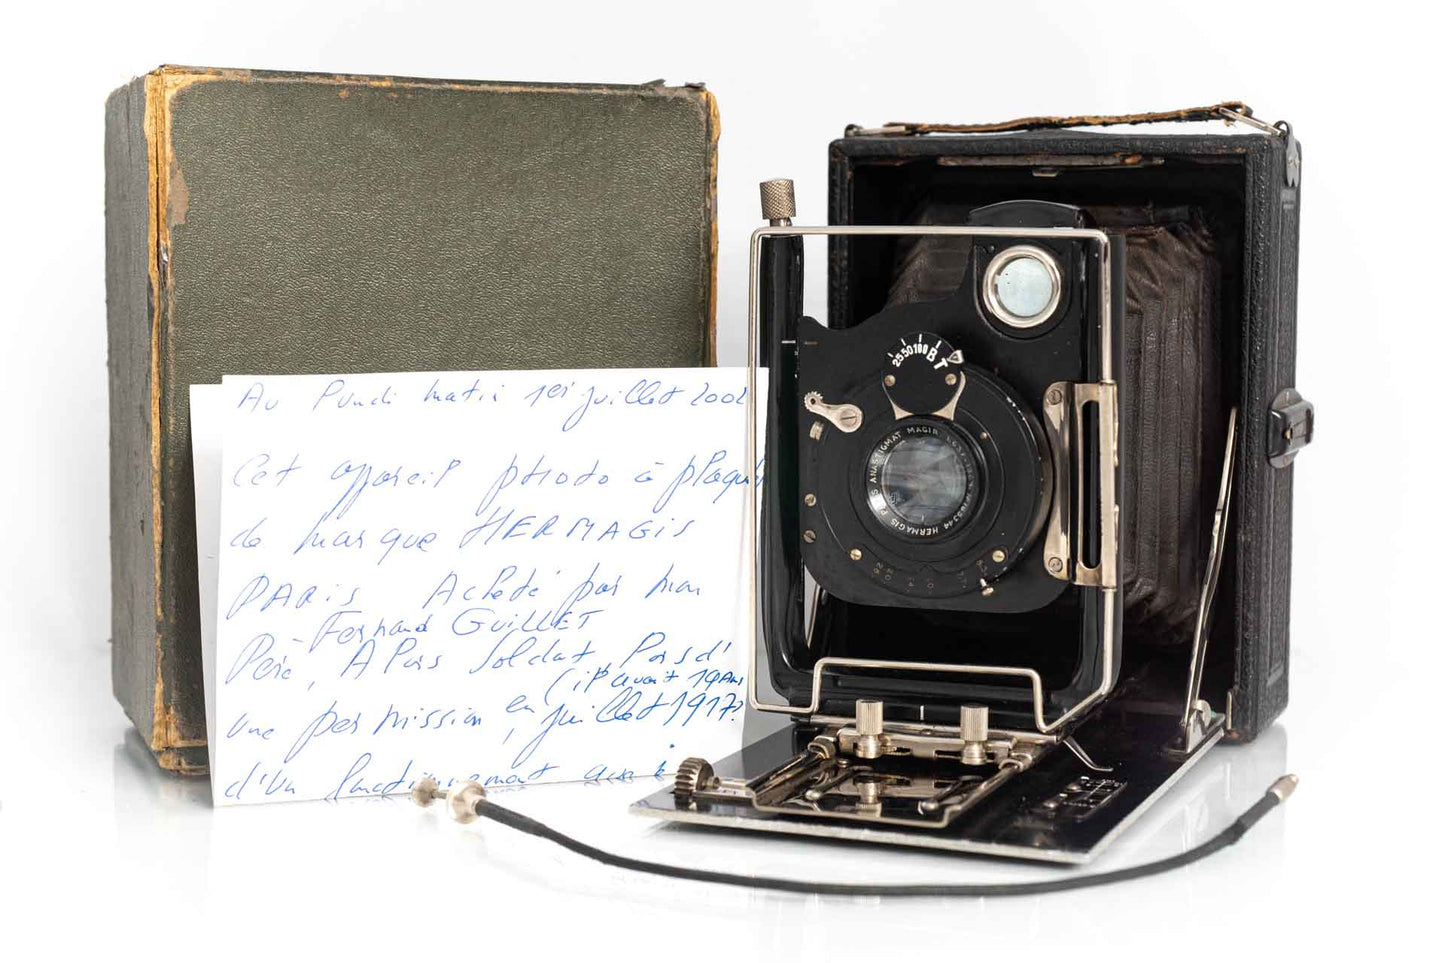 Au Pundi matin 1er juillet 200
Cet appareil photo à plaqu
de marque HERMAGIS
PARIS Acheté par mon
Fernand GUILLET
Père, A Paris Soldat Lors d'
(il avait 19 Ans
une permission en juillet 1917?
d'un fonctionnement
25 50 100 B T
HERMAGIS PARIS ANASTIGMAT MAGIR